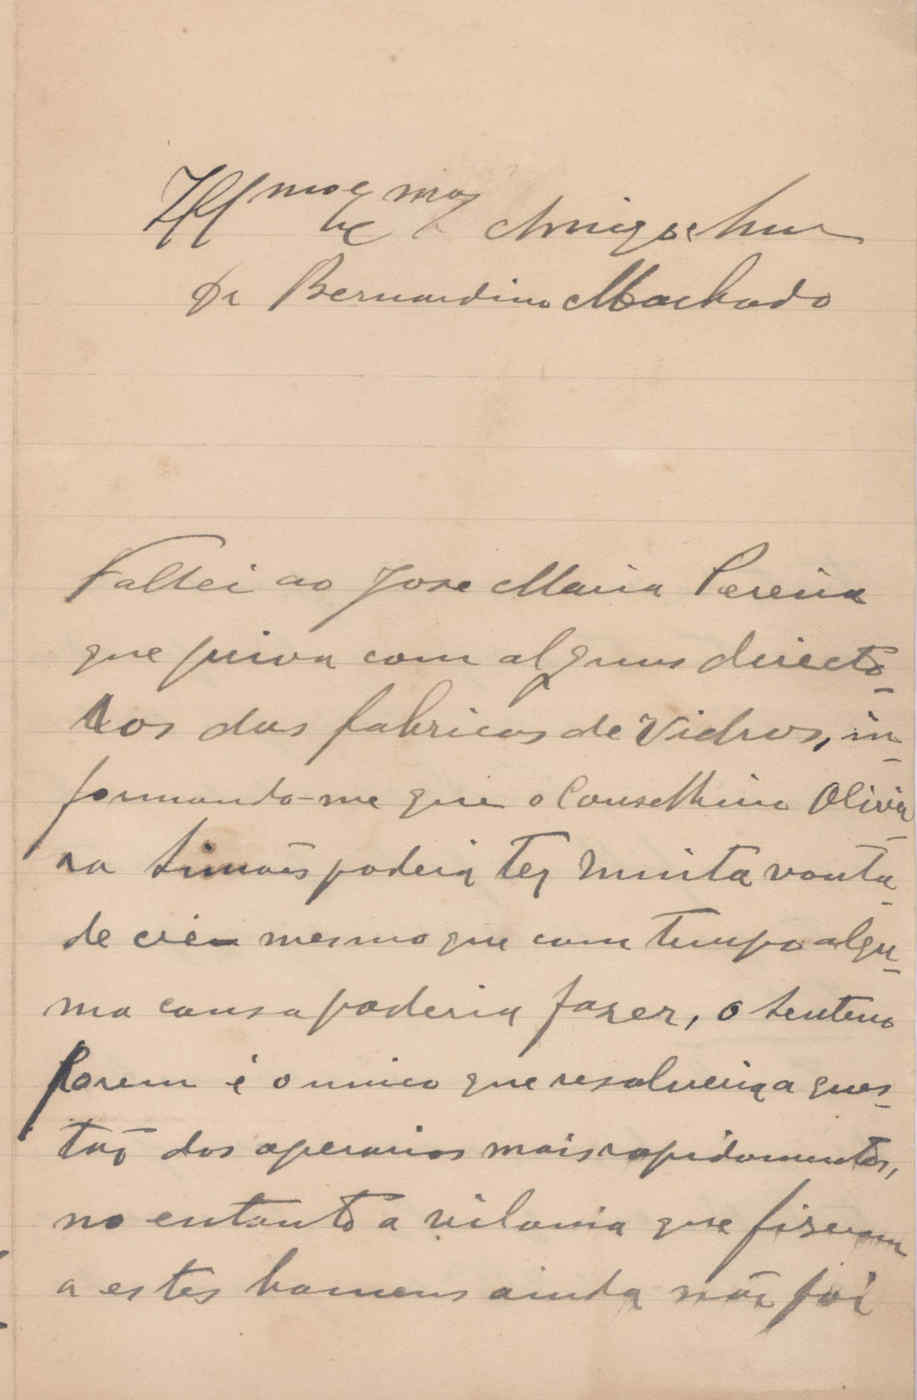 Illmo e Exmo Amigo e Snr
Dr Bernardino Machado
Fallei ao Jose Maria Pereira
que priva com alguns directo-
res das fabricas de Vidros, in-
formando-me que o Conselheiro Olivei-
ra Simões poderia ter muita vonta-
de e mesmo que com tempo algu-
ma cousa poderia fazer, o Centeno
porem é o unico que resolveria a ques-
tão dos operarios mais rapidamente,
no entanto a vilania que fizeram
a estes homens ainda não foi